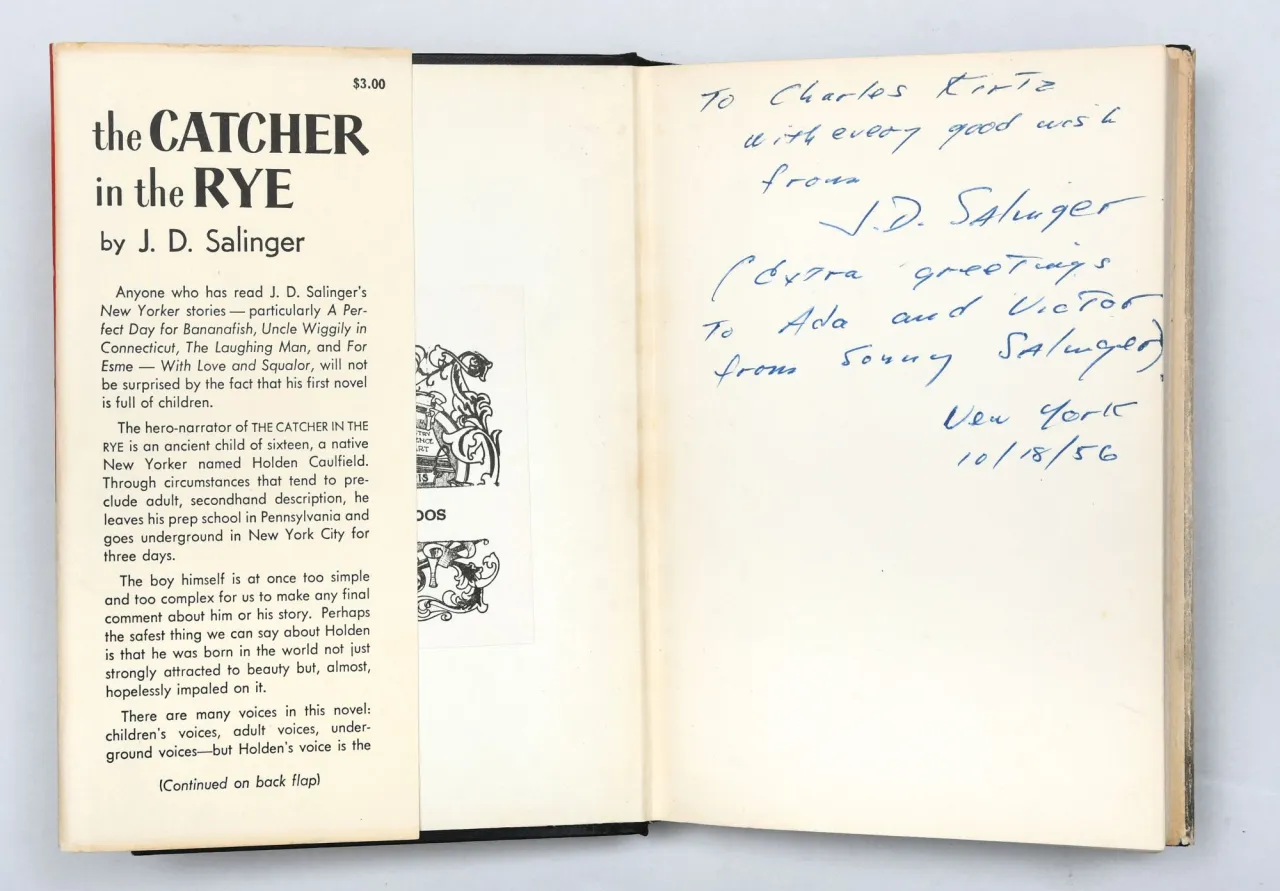 $3.00
the CATCHER
in the RYE
by J. D. Salinger
Anyone who has read J. D. Salinger's
New Yorker stories — particularly A Per-
fect Day for Bananafish, Uncle Wiggily in
Connecticut, The Laughing Man, and For
Esme — With Love and Squalor, will not
be surprised by the fact that his first novel
is full of children.
The hero-narrator of THE CATCHER IN THE
RYE is an ancient child of sixteen, a native
New Yorker named Holden Caulfield.
Through circumstances that tend to pre-
clude adult, secondhand description, he
leaves his prep school in Pennsylvania and
goes underground in New York City for
three days.
The boy himself is at once too simple
and too complex for us to make any final
comment about him or his story. Perhaps
the safest thing we can say about Holden
is that he was born in the world not just
strongly attracted to beauty but, almost,
hopelessly impaled on it.
There are many voices in this novel:
children's voices, adult voices, under-
ground voices—but Holden's voice is the
(Continued on back flap)
To Charles Kirtz
with every good wish
from
J.D. Salinger
(Extra greetings
To Ada and Victor
from Sonny Salinger)
New York
10/18/56